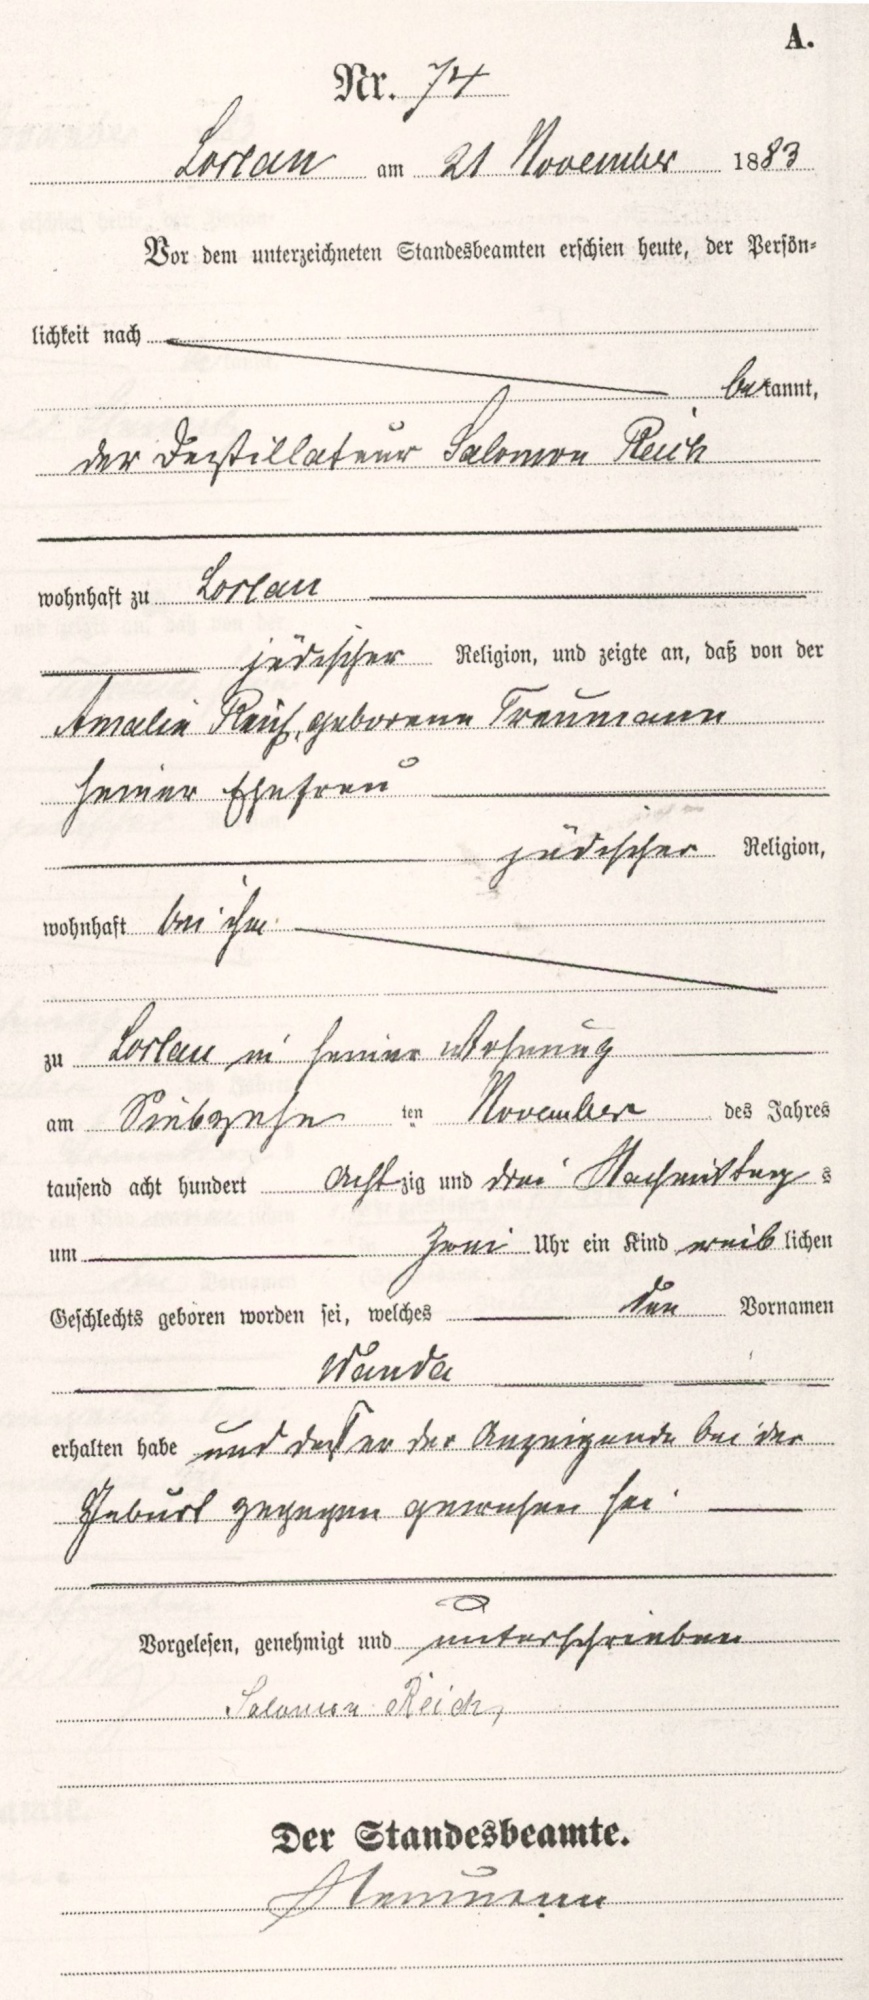 A.
Nr. 74
Loslau am 21 November 1883
Vor dem unterzeichneten Standesbeamten erschien heute, der Persön-
lichkeit nach
bekannt,
der Destillateur Salomon Reich
wohnhaft zu Loslau
jüdischer Religion, und zeigte an, daß von der
Amalie Reich, geborene Traumann
seiner Ehefrau
jüdischer Religion,
wohnhaft bei ihm
zu Loslau in seiner Wohnung
am Siebzehn ten November des Jahres
tausend acht hundert achtzig und drei Nachmittags
um zwei Uhr ein Kind weiblichen
Geschlechts geboren worden sei, welches den Vornamen
Wanda
erhalten habe und daß er der Anzeigende bei der
Geburt zugegen gewesen sei
Vorgelesen, genehmigt und unterschrieben
Salomon Reich,
Der Standesbeamte.